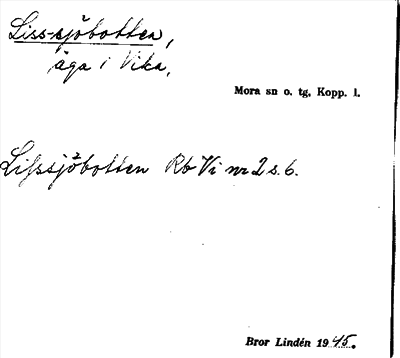 Liss-sjöbotten,
äga i Vika,
Mora sn o. tg, Kopp. l.
Lisssjöbotten Rb Vi nr 2 s. 6.
Bror Lindén 1945.